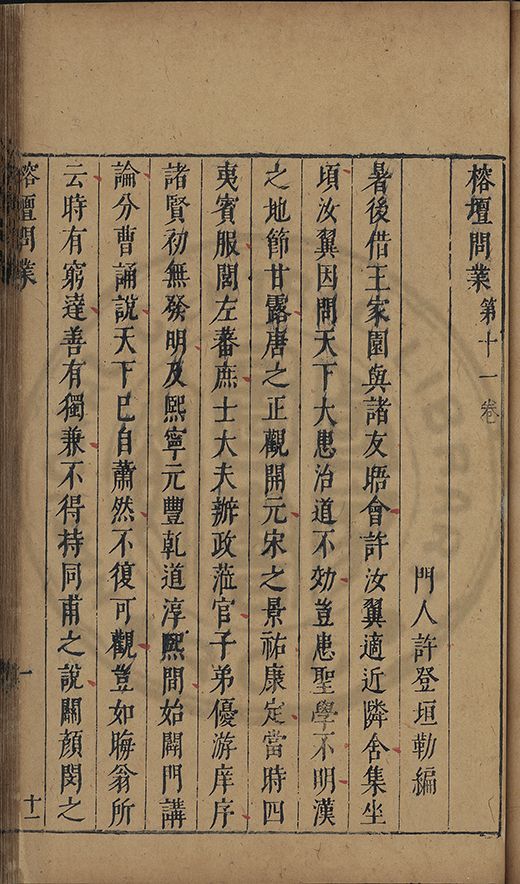 榕壇問業第十一卷
門人許登垣勒編
暑後借王家園與諸友晤會許汝翼適近隣舍集坐
頃汝翼因問天下大患治道不効豈患聖學不明漢
之地節甘露唐之正觀開元宋之景祐康定當時四
夷賓服閭左蕃庶士大夫辦政蒞官子弟優游庠序
諸賢初無發明及熙寧元豐乾道淳熙間始開門講
論分曹誦說天下已自蕭然不復可觀豈如晦翁所
云時有窮達善有獨兼不得持同甫之說關顏閔之
榕壇問業
一
十一